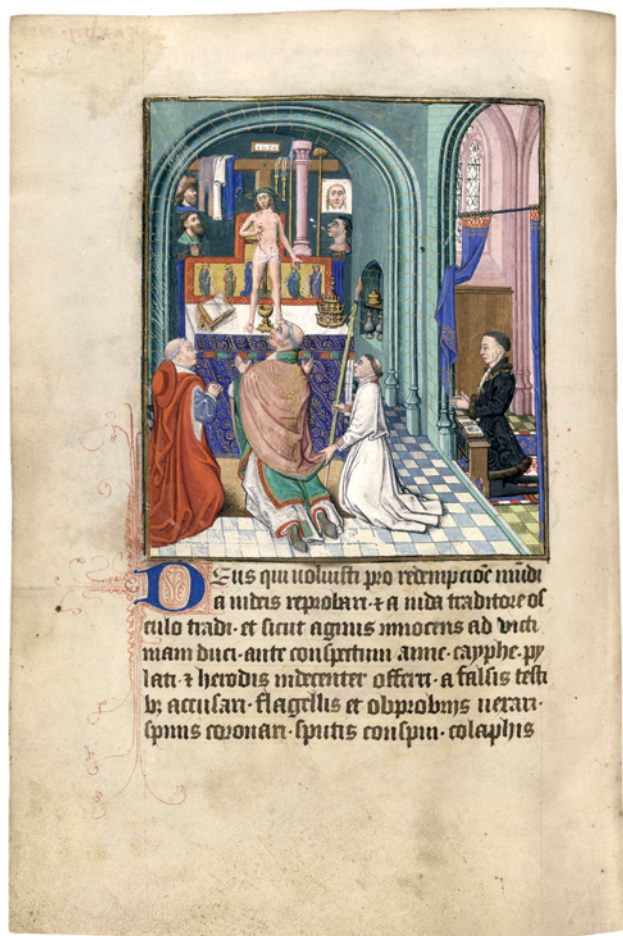 INRI
Deus qui uoluisti pro redempcōe mūdi
a iudeis reprobari·⁊ a iuda traditore os
culo tradi·et sicut agnus innocens ad victi
mam duci·ante conspectum anne·cayphe·py
lati·⁊ herodis indecenter offerri·a falsis testi
bꝫ accusari·flagellis et obprobrijs uexari·
spinis coronari·sputis conspui·colaphis